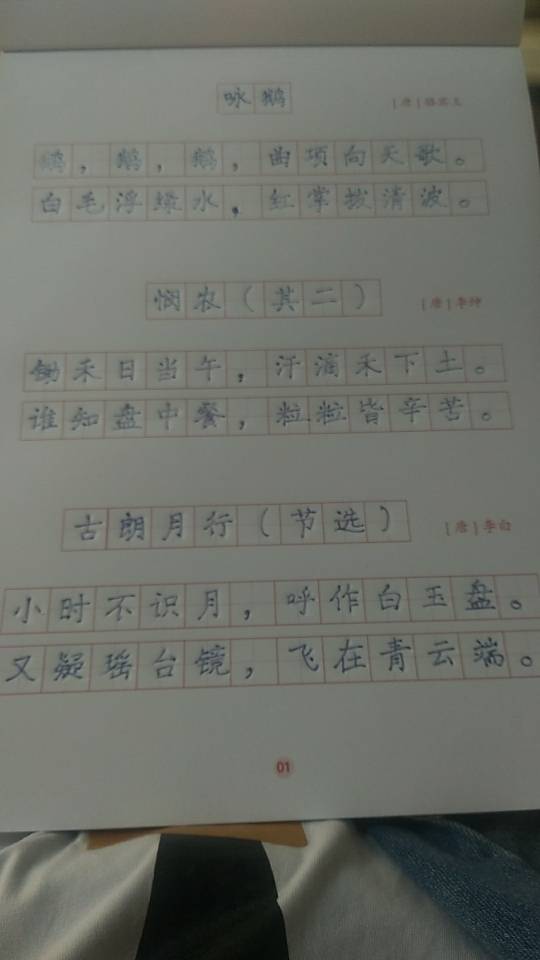 咏鹅
[唐]骆宾王
鹅，鹅，鹅，曲项向天歌。
白毛浮绿水，红掌拨清波。
悯农（其二）
[唐]李绅
锄禾日当午，汗滴禾下土。
谁知盘中餐，粒粒皆辛苦。
古朗月行（节选）
[唐]李白
小时不识月，呼作白玉盘。
又疑瑶台镜，飞在青云端。
01